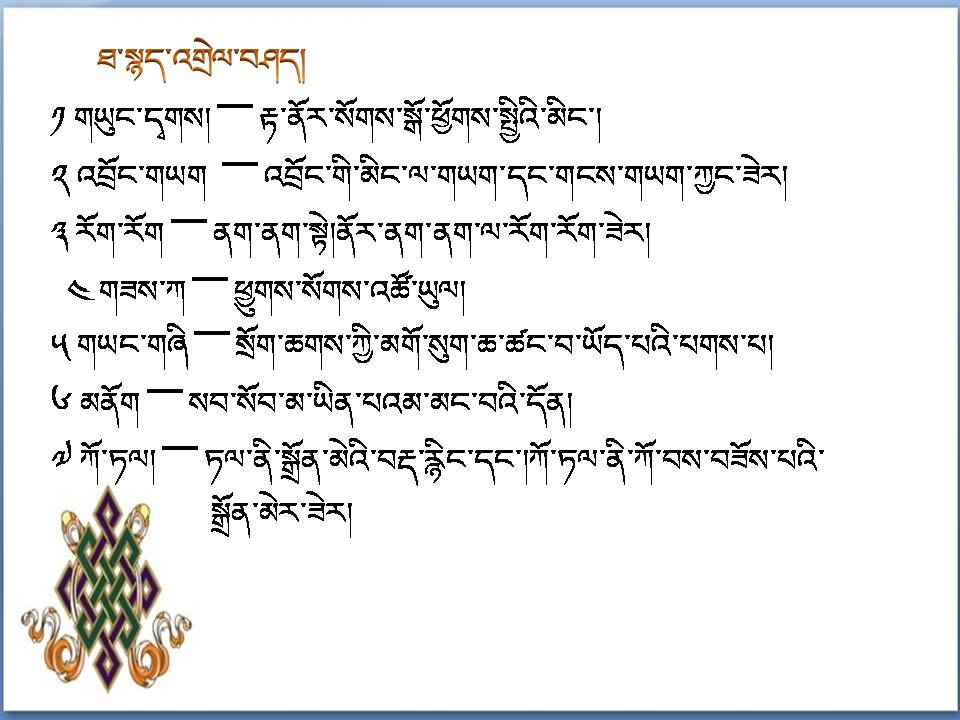 ཐ་སྙད་འགྲེལ་བཤད།
༡ གཡུང་དྭགས། — རྟ་ནོར་སོགས་སྒོ་ཕྱོགས་སྤྱིའི་མིང་།
༢ འབྲོང་གཡག — འབྲོང་གི་མིང་ལ་གཡག་དང་གངས་གཡག་ཀྱང་ཟེར།
༣ རོག་རོག — ནག་ནག་སྟེ།ནོར་ནག་ནག་ལ་རོག་རོག་ཟེར།
༤ གཟས་ཀ — ཕྱུགས་སོགས་འཚོ་ཡུལ།
༥ གཡང་གཞི — སྲོག་ཆགས་ཀྱི་མགོ་སུག་ཆ་ཚང་བ་ཡོད་པའི་པགས་པ།
༦ མནོག — སབ་སོབ་མ་ཡིན་པའམ་མང་བའི་དོན།
༧ ཀོ་ཏལ། — ཏལ་ནི་སྒྲོན་མེའི་བརྡ་རྙིང་དང་།ཀོ་ཏལ་ནི་ཀོ་བས་བཟོས་པའི་
སྒྲོན་མེར་ཟེར།